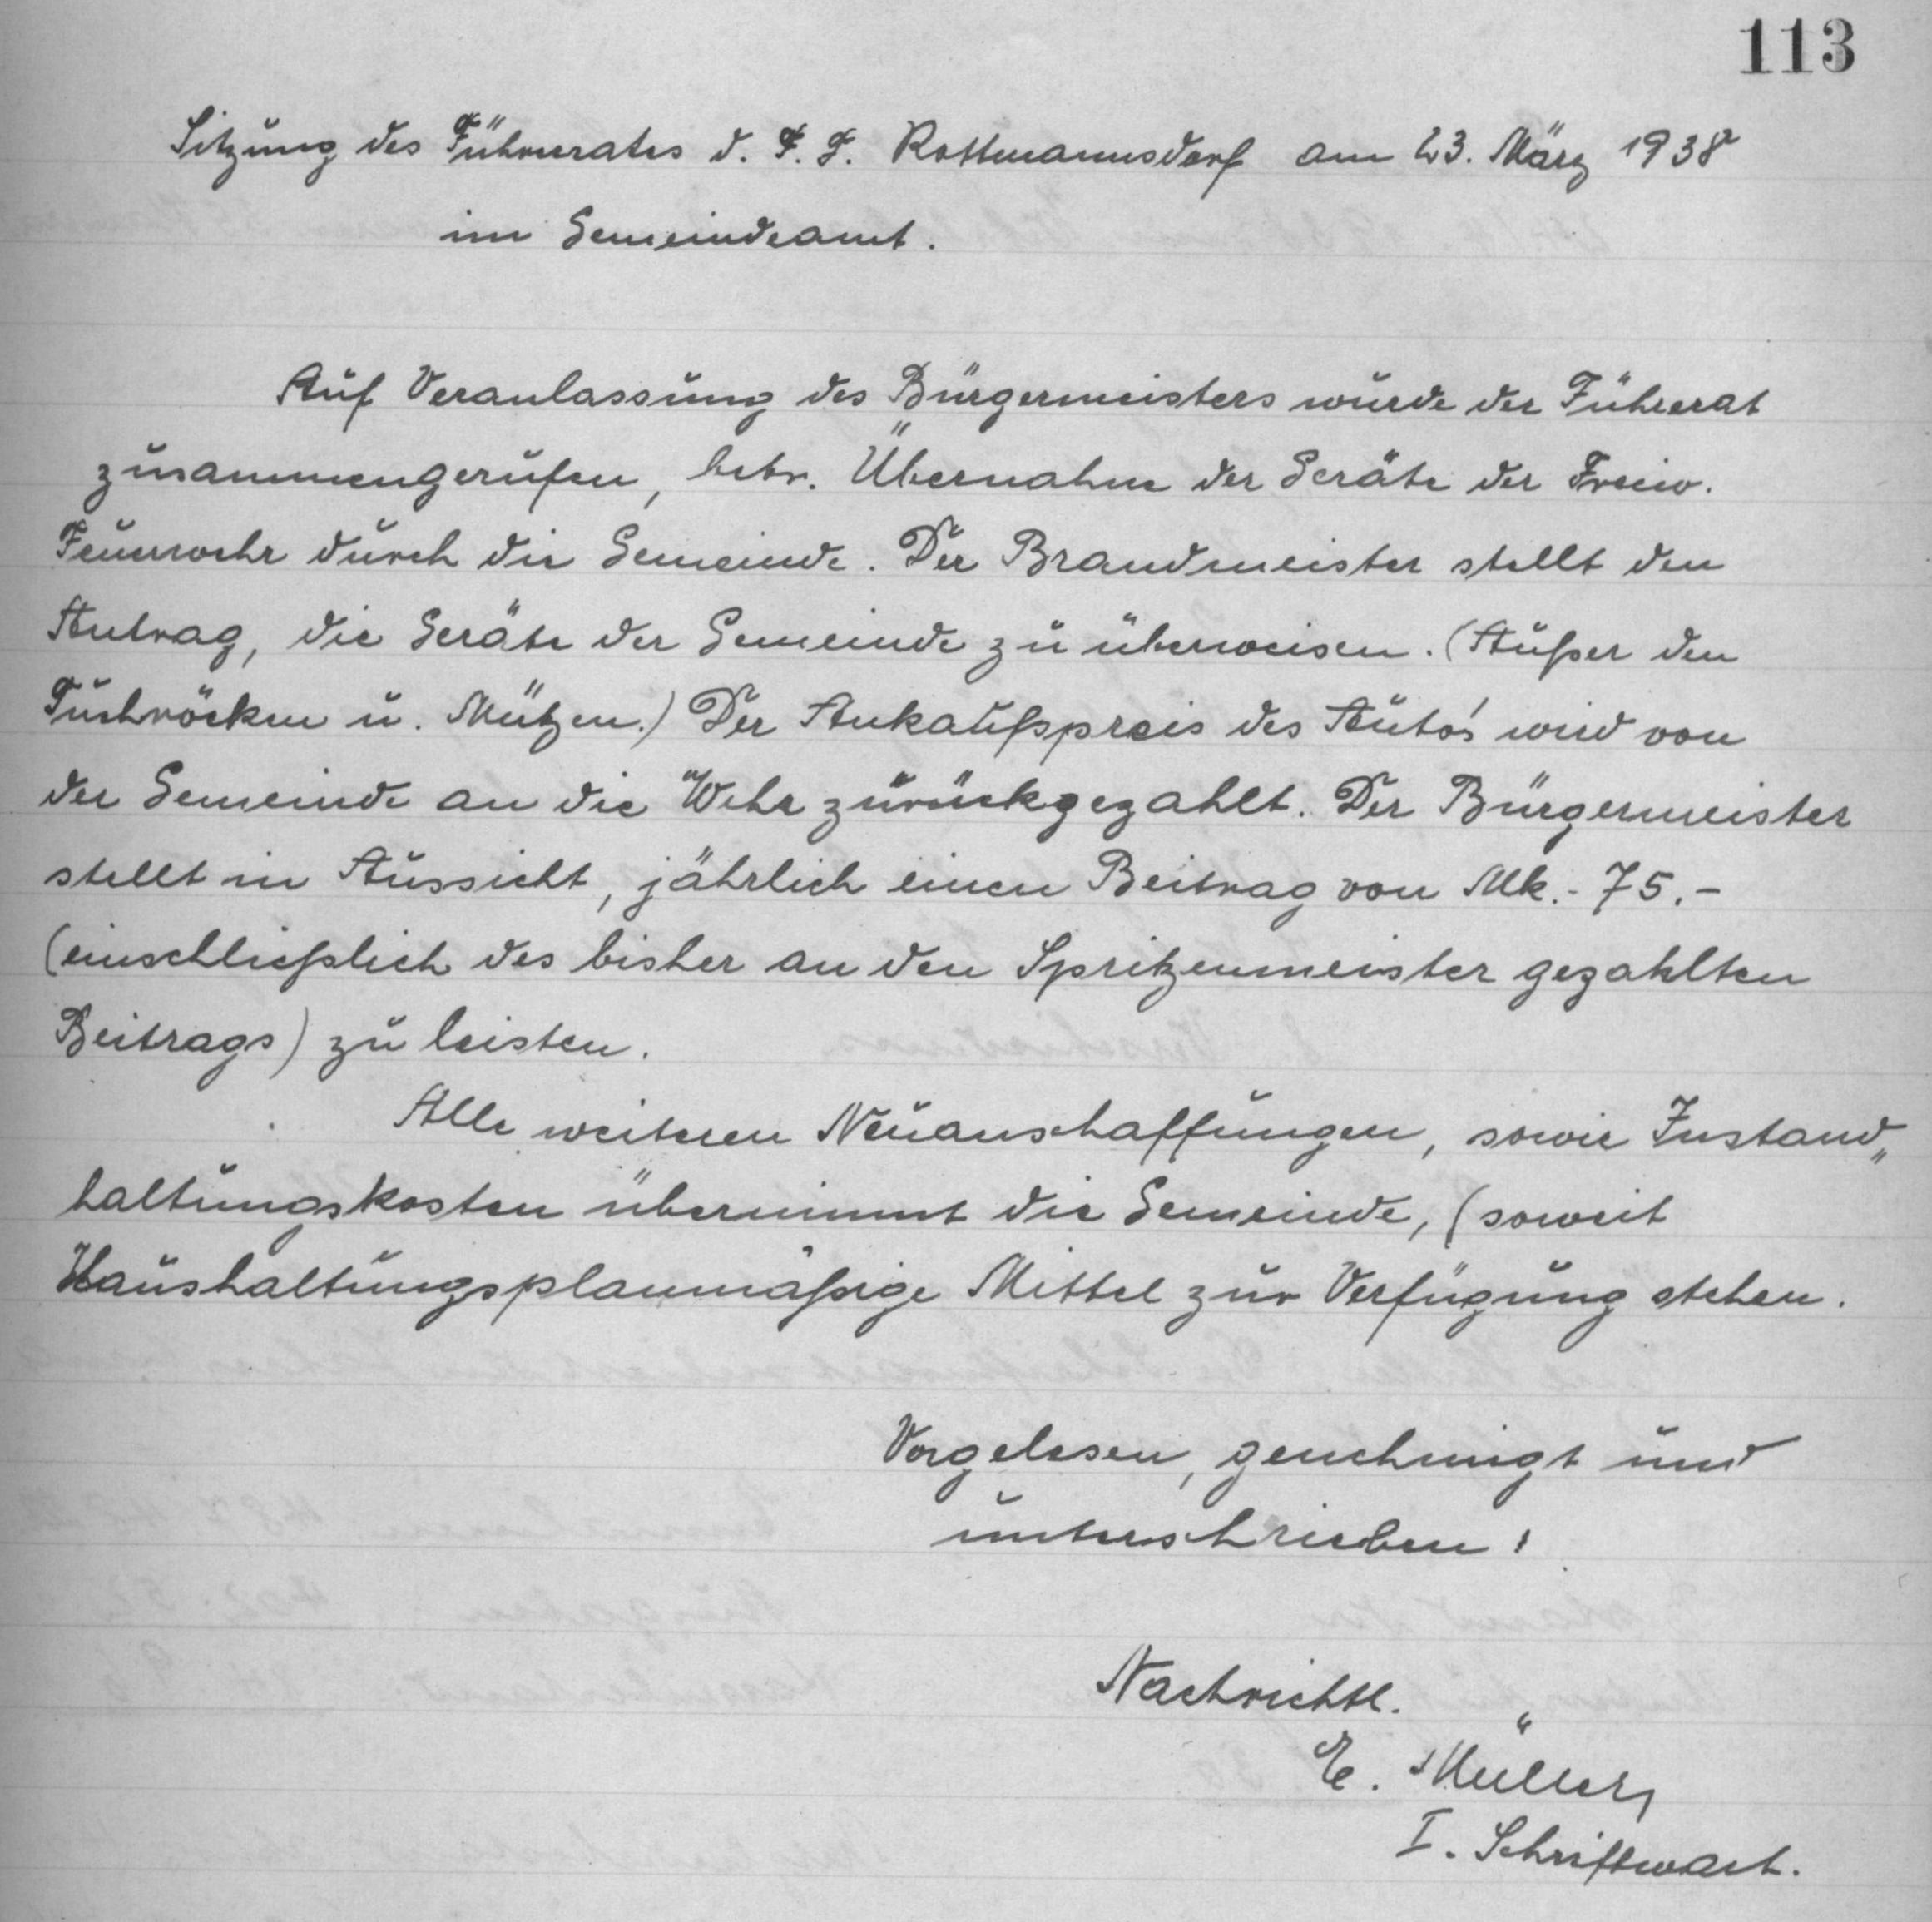 113
Sitzung des Führerrates d. F. F. Rottmannsdorf am 23. März 1938
im Gemeindeamt.
Auf Veranlassung des Bürgermeisters wurde der Führerat
zusammengerufen, betr. Übernahme der Geräte der Freiw.
Feuerwehr durch die Gemeinde. Der Brandmeister stellt den
Antrag, die Geräte der Gemeinde zu überweisen. (Außer den
Tuchröcken u. Mützen.) Der Ankaufspreis des Auto's wird von
der Gemeinde an die Wehr zurückgezahlt. Der Bürgermeister
stellt in Aussicht, jährlich einen Beitrag von Mk.- 75.-
(einschließlich des bisher an den Spritzenmeister gezahlten
Beitrags) zu leisten.
Alle weiteren Neuanschaffungen, sowie Instand„
haltungskosten übernimmt die Gemeinde, (soweit
Haushaltungsplanmäßige Mittel zur Verfügung stehen.
Vorgelesen, genehmigt und
unterschrieben:
Nachrichtl.
E. Müller,
I. Schriftwart.